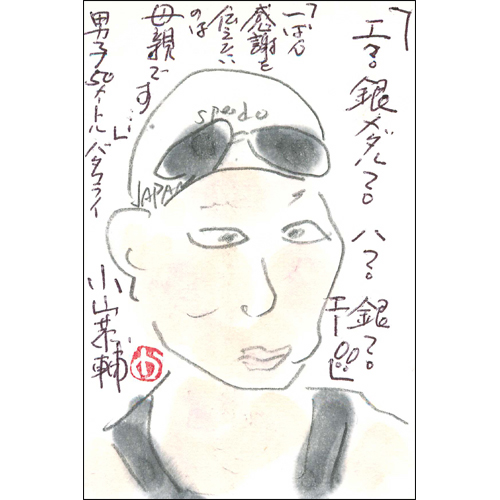 「エ?。銀メダル?。ハ?。銀?。
「一ばん
感謝を
伝えたい
のは
母親です…」
男子50メートルバタフライ
小山恭輔
speedo
JAPAN